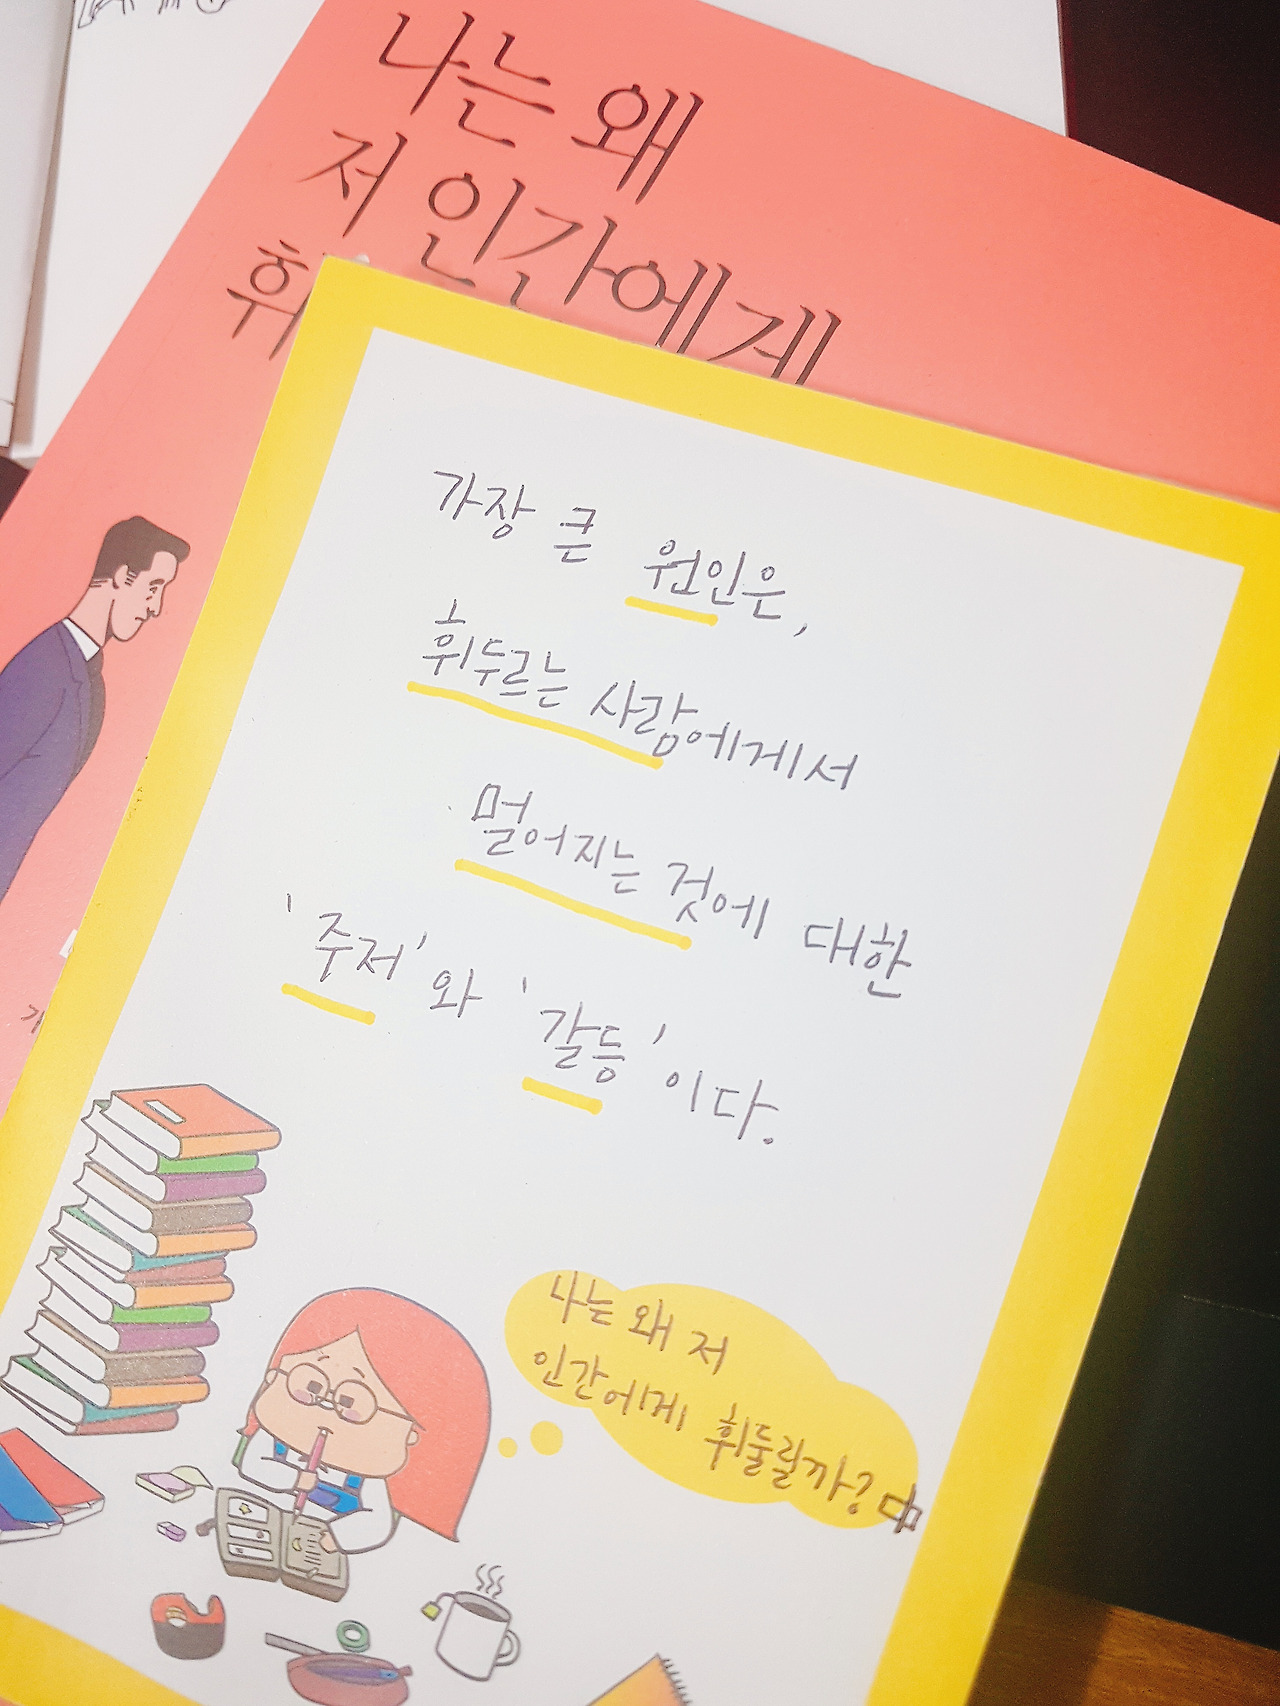 나는 왜
저 인간에게
휘
가장 큰 원인은,
휘두르는 사람에게서
멀어지는 것에 대한
'주저'와 '갈등'이다.
나는 왜 저
인간에게 휘둘릴까? 中